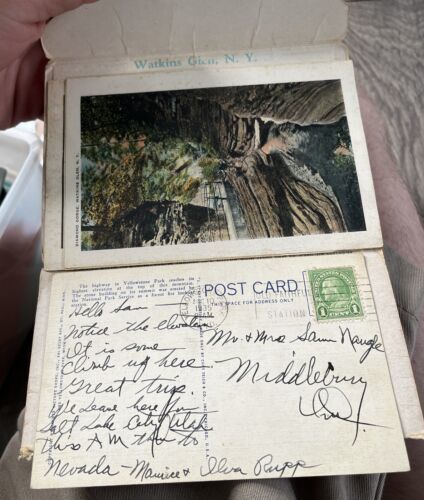 Watkins Glen, N. Y.
DIAMOND GORGE, WATKINS GLEN, N. Y.
The highway in Yellowstone Park reaches its
highest elevation at the top of this mountain.
The stone building on its summit was erected by
the National Park Service as a forest fire lookout
station.
POST CARD
THIS SPACE FOR ADDRESS ONLY
1935
STATION
1 CENT 1
Hello Sam
Notice the elevation
It is some
climb up here
Great trip.
We leave here for
Salt Lake City Utah
this A M then to
Nevada - Maurice & Ilva Rupp
Mr & Mrs Sam Nangle
Middlebury
Ind.